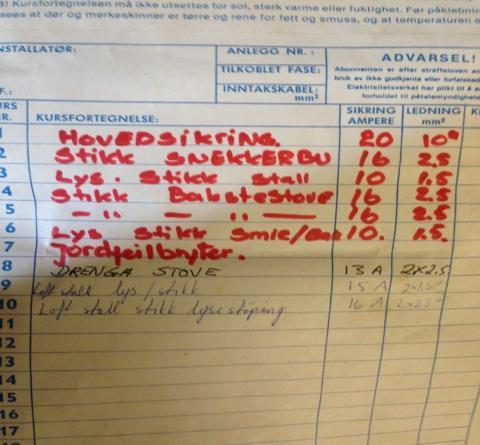 ! Kursfortegnelsen må ikke utsettes for sol, sterk varme eller fuktighet. Før påklistrin
sees at dør og merkeskinner er tørre og rene for fett og smuss, og at temperaturen
NSTALLATØR: ANLEGG NR.: ADVARSEL!
TILKOBLET FASE: Abonnenten er etter straffeloven an
bruk av ikke godkjente eller forfalske
NR.: INNTAKSKABEL: mm² Elektrisitetsverket har plikt til å
forholdet til påtalemyndighet
KURS NR KURSFORTEGNELSE: SIKRING AMPERE LEDNING mm²
1 HOVEDSIKRING. 20 10
2 STIKK SNEKKERBU 16 2.5
3 LYS. STIKK STALL 10 1.5
4 STIKK BAKSTESTOVE 16 2.5
5 — " — — " — 16 2.5
6 LYS STIKK SMIE/ 10. 1.5
7 Jordfeilbryter.
8 DRENGA STOVE 13 A 2x2,5
9 Loft stall lys / stikk 15 A 2x1,5
10 Loft stall stikk lysestøping 16 A 2x2,5
11
12
13
14
15
16
17
18